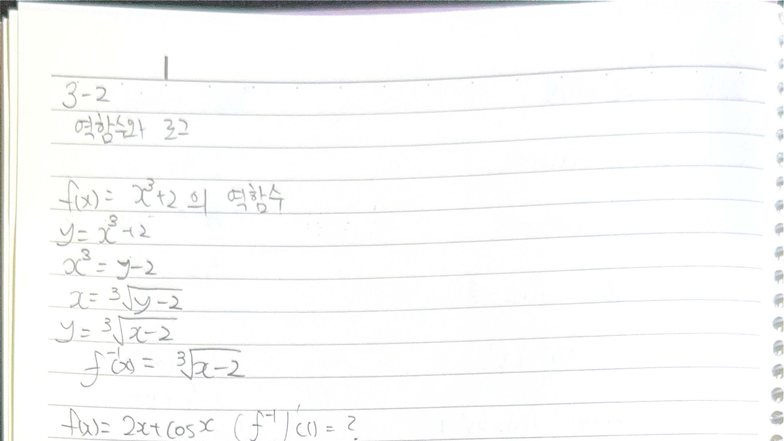 3-2
역함수와 로그
f(x) = x³+2 의 역함수
y = x³+2
x³ = y-2
x = ³√(y-2)
y = ³√(x-2)
f⁻¹(x) = ³√(x-2)
f(x) = 2x+cosx (f⁻¹)'(1) = ?